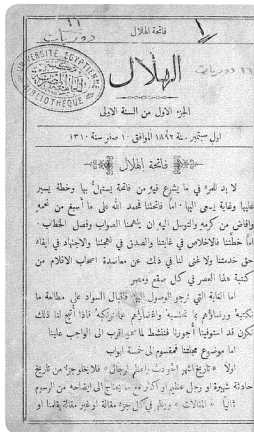 فاتحة الهلال
UNIVERSITE EGYPTIENNE
BIBLIOTHEQUE
الهلال
الجزء الاول من السنة الاولى
اول سبتمبر سنة ١٨٩٢ الموافق ١٠ صفر سنة ١٣١٠
فاتحة الهلال
لا بد للمرء في ما يشرع فيه من فاتحة يستهل بها وخطة يسير
عليها وغاية يرمي اليها . اما فاتحتنا فحمد الله على ما اسبغ من نعمه
وافاض من كرمه والتوسل اليه ان يلهمنا الصواب وفصل الخطاب .
اما خطتنا فالاخلاص في غايتنا والصدق في لهجتنا والاجتهاد في ايفاء
حق خدمتنا ولا غنى لنا في ذلك عن معاضدة اصحاب الاقلام من
كتبة هذا العصر في كل صقع ومصر
اما الغاية التي نرجو الوصول اليها فاقبال السواد على مطالعة ما
نكتبه ورضاؤهم بما نحتسبه واغضاؤهم عما نرتكبه فاذا اتيح لنا ذلك
نكون قد استوفينا اجورنا فننشط لما هو اقرب الى الواجب علينا
اما موضوع مجلتنا فمقسوم الى خمسة ابواب
اولا « تاريخ اشهر الحوادث واعظم الرجال » فلا يخلو جزء من تاريخ
حادثة شهيرة او رجل عظيم او اكثر مع ما يحتاج الى ايضاحه من الرسوم
ثانيا « المقالات » ويظهر في كل جزء مقالة او غير مقالة بقلمنا او